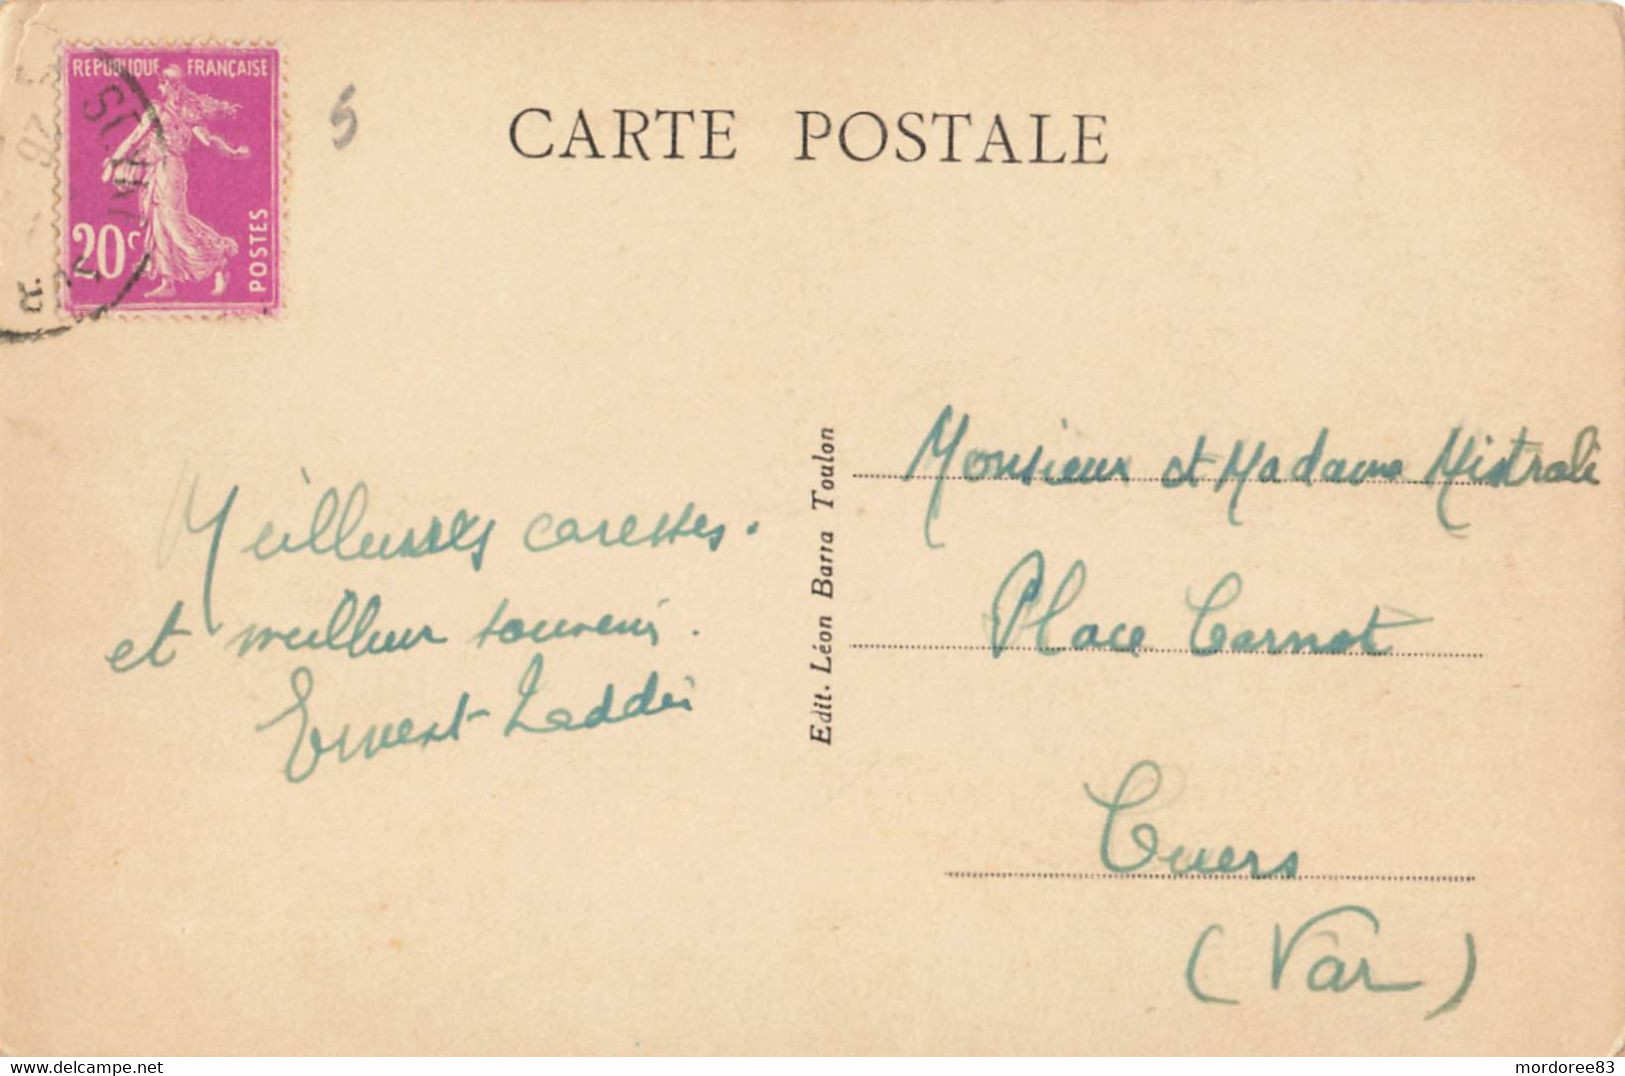 REPUBLIQUE FRANÇAISE
20c
POSTES
5
CARTE POSTALE
Meilleures caresses.
et meilleur souvenir.
Ernest
Edit. Léon Barra Toulon
Monsieur et Madame Mistrali
Place Carnot
Cuers
(Var)
www.delcampe.net
mordoree83